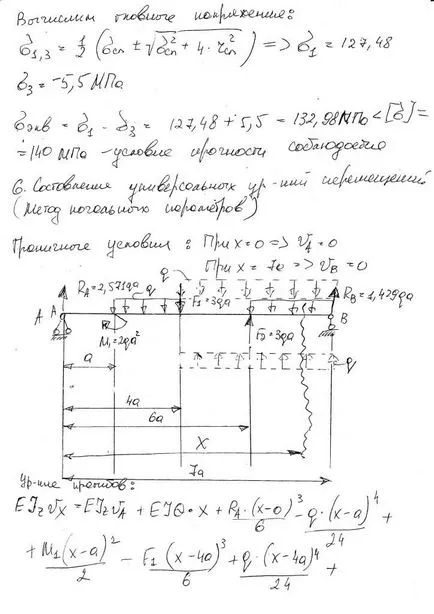 Вычислим главное напряжение:
σ₁,₃ = 1/2 (σсп ± √(σсп² + 4·τсп²)) => σ₁ = 127,48
σ₃ = -5,5 МПа
σэкв = σ₁ - σ₃ = 127,48 + 5,5 = 132,98 МПа < [σ] =
= 140 МПа - условие прочности соблюдается
6. Составление универсальных ур-ний перемещений
(Метод начальных параметров)
Граничное условия: При x=0 => v_A = 0
При x = 7a => v_B = 0
q
R_A = 2,571qa
q
F₁ = 3qa
R_B = 1,429qa
A A
B
M₁ = 2qa²
F₂ = 3qa
a
q
4a
6a
X
7a
Ур-ние прогибов:
EJz Vx = EJz VA + EJθ · x + R_A · (x-0)³/6 - q · (x-a)⁴/24 +
+ M₁(x-a)²/2 - F₁(x-4a)³/6 + q · (x-4a)⁴/24 +